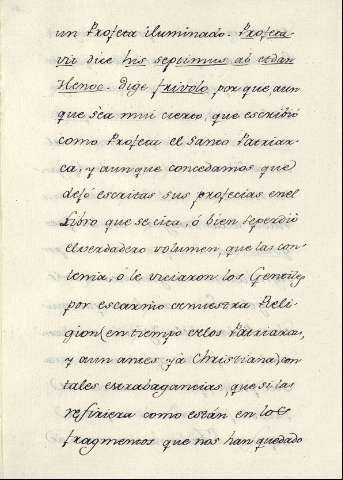 un Profeta iluminado. Profeta-
vit dice his septimus ab
Henoc. Dige frivolo por que aun
que sea mui cierto, que escribió
como Profeta el Santo Patriar-
ca, y aun que concedamos que
dejó escritas sus profecias en el
Libro que se cita, ó bien se perdió
el verdadero volumen, que las con-
tenia, ó le viciaron los Gentiles
por escarnio de nuestra Reli-
gion (en tiempo de los Patriarcas,
y aun antes ya Christiana) con
tales extrabagancias, que si las
refiriera como están en los
fragmentos que nos han quedado